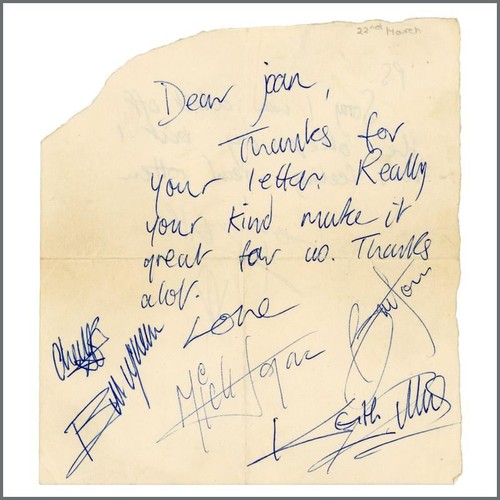 22nd March
Dear joan,
Thanks for
your letter. Really
your kind make it
great for us. Thanks
alot.
Love
Bill Wyman
Mick Jagger
Keith